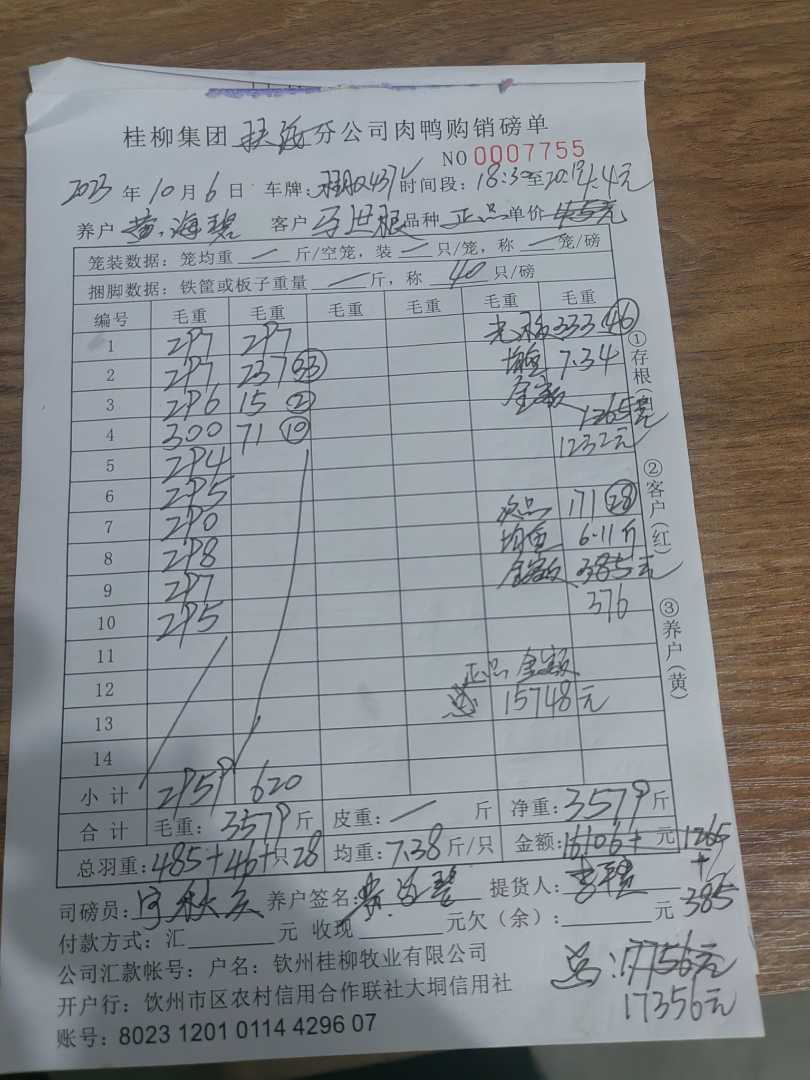 桂柳集团 扶 分公司肉鸭购销磅单
NO 0007755
2023 年 10 月 6 日 车牌: 437 时间段: 18:30 至 20:19 4.4元
养户 黄海碧 客户 马世根 品种 正品 单价 4.5元
笼装数据: 笼均重 一 斤/空笼, 装 一 只/笼, 称 一 笼/磅
捆脚数据: 铁筐或板子重量 一 斤, 称 40 只/磅
编号 毛重 毛重 毛重 毛重 毛重 毛重
1 297 297 333 46
2 297 237 33 均重 7.34
3 296 15 2 金额 1265元
4 300 71 10 1232元
5 294
6 295 次品 171 28
7 290 均重 6.11斤
8 298 金额 385元
9 297 376
10 295
11 正品金额
12 总 15748元
13
14
小计 2959 620
合计 毛重: 3579 斤 皮重: 一 斤 净重: 3579 斤
总羽重: 485+46+ 只 28 均重: 7.38 斤/只 金额: 16106+ 元 1265
+
385
司磅员: 养户签名: 黄海碧 提货人:
付款方式: 汇 元 收现 元欠(余): 元
公司汇款帐号: 户名: 钦州桂柳牧业有限公司
总: 17756元
开户行: 饮州市区农村信用合作联社大垌信用社
17356元
账号: 8023 1201 0114 4296 07
①存根
②客户(红)
③养户(黄)